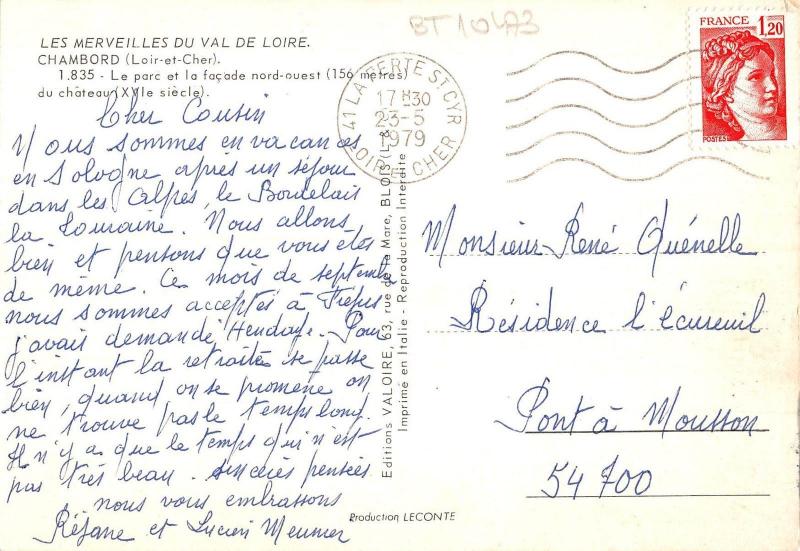 BT 10473
LES MERVEILLES DU VAL DE LOIRE.
CHAMBORD (Loir-et-Cher).
1.835 - Le parc et la façade nord-ouest (156 mètres)
du château (XVIe siècle).
Cher Cousin
Nous sommes en vacances
en Sologne après un séjour
dans les Alpes, le Bordelais
la Touraine. Nous allons
bien et pensons que vous etes
de même. Ce mois de septemb
nous sommes acceptés à Fréjus
j'avais demandé Hendaye. Pour
l'instant la retraite se passe
bien, quand on se promène on
ne trouve pas le temps long.
Il n'y a que le temps qui n'est
pas très beau. sincères pensées
nous vous embrassons
Réjane et Lucien Meunier
Editions VALOIRE, 63, rue de la Mare, BLOIS (L.-&
Imprimé en Italie - Reproduction Interdite
Production LECONTE
41 LA FERTE ST CYR
17 H30
23-5
1979
LOIR ET CHER
FRANCE 1,20
POSTES
Monsieur René Quénelle
Résidence l'écureuil
Pont à Mousson
54 700